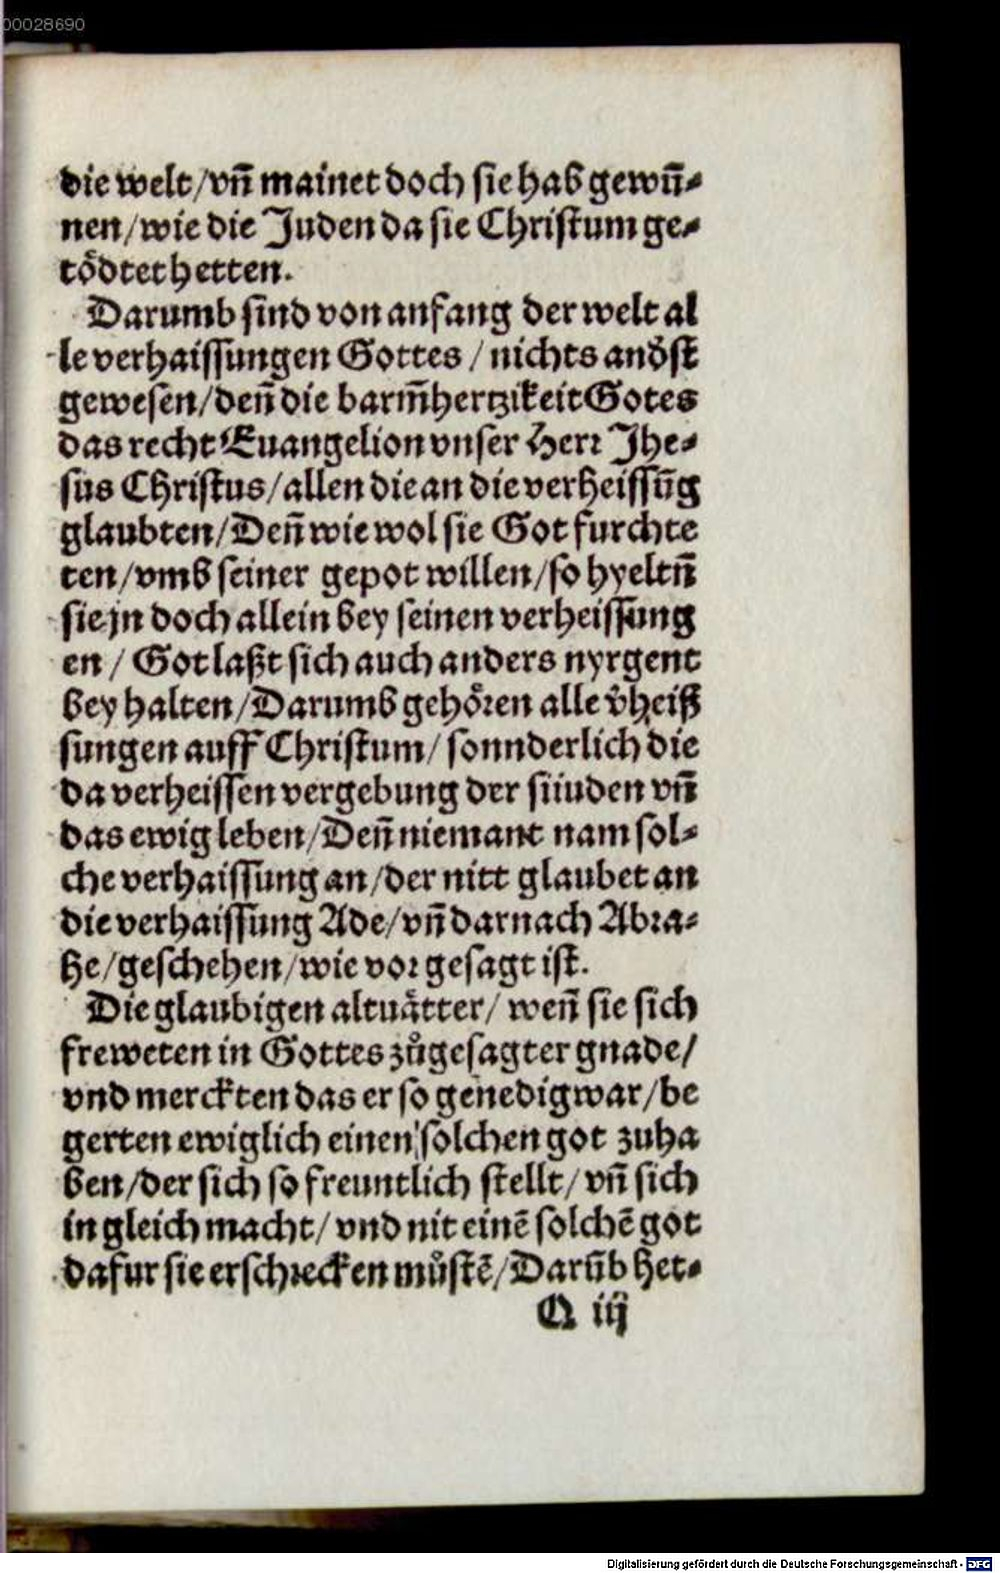 00028690
die welt/vn̄ mainet doch sie hab gewun̄⸗
nen/wie die Juden da sie Christum ge⸗
tödtet hetten.
Darumb sind von anfang der welt al
le verhaissungen Gottes / nichts andˀst
gewesen/den̄ die barm̄hertzikeit Gotes
das recht Euangelion vnser Herr Jhe⸗
sus Christus/allen die an die verheissūg
glaubten/Den̄ wie wol sie Got furchte
ten/vmb seiner gepot willen/so hyeltn̄
sie jn doch allein bey seinen verheissung
en / Got laßt sich auch anders nyrgent
bey halten/Darumb gehören alle vˀheiß
sungen auff Christum/ sonnderlich die
da verheissen vergebung der siinden vn̄
das ewig leben/Den̄ niemant nam sol⸗
che verhaissung an/der nitt glaubet an
die verhaissung Ade/vn̄ darnach Abra⸗
he/geschehen/wie vor gesagt ist.
Die glaubigen altuåtter/ wen̄ sie sich
freweten in Gottes zůgesagter gnade/
vnd merckten das er so genedig war/be
gerten ewiglich einen solchen got zuha
ben/der sich so freuntlich stellt/ vn̄ sich
in gleich macht/ vnd nit einē solchē got
dafur sie erschrecken můstē/Darūb het⸗
Q iij
Digitalisierung gefördert durch die Deutsche Forschungsgemeinschaft - DFG